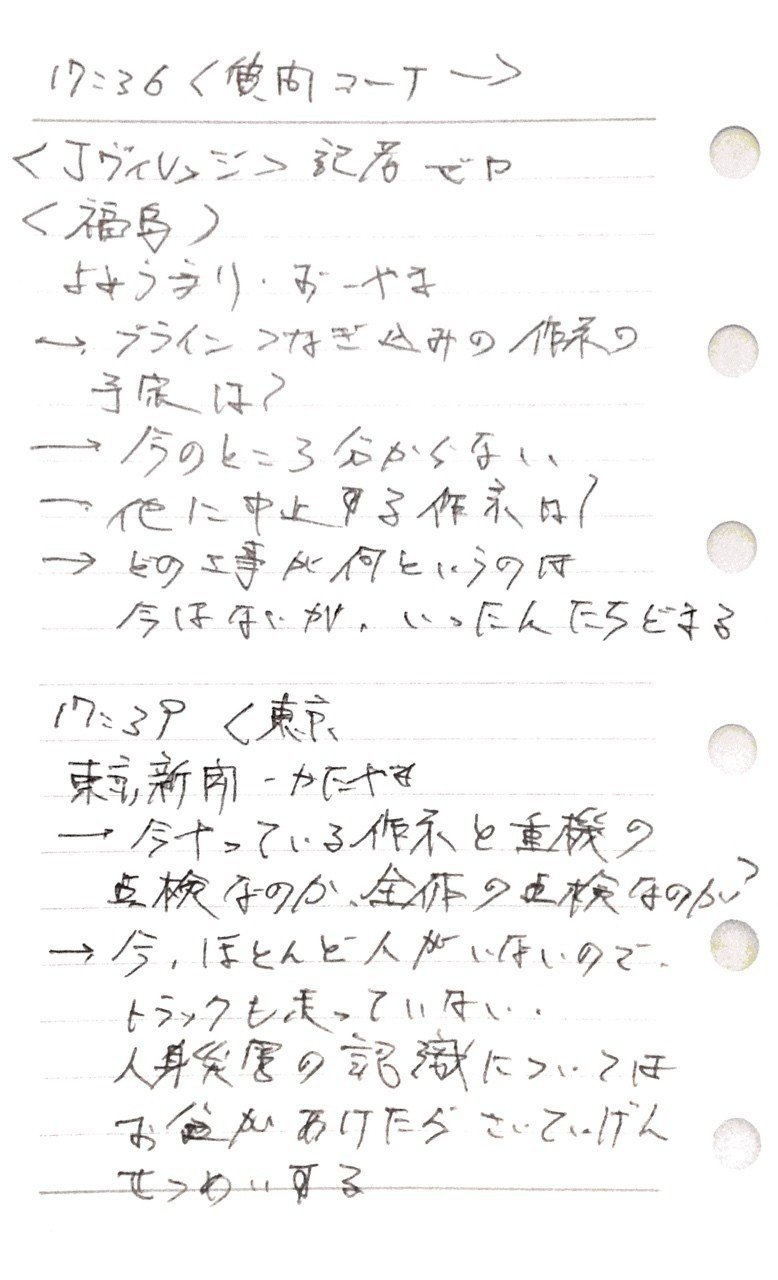 17:36 <質問コーナー>
<Jヴィレッジ> 記者ゼロ
<福島>
よみうり・おーやま
→ ブラインつなぎ込みの作業の
予定は?
→ 今のところ分からない、
→ 他に中止する作業は?
→ どの工事が何というのは
今はないが、いったんたちどまる
17:39 <東京、
東京新聞-かたやま
→ 今やっている作業と重機の
点検なのか、全体の点検なのか?
→ 今、ほとんど人がいないので、
トラックも走っていない.
人身災害の認識については
お盆があけたらさいていげん
せつめいする